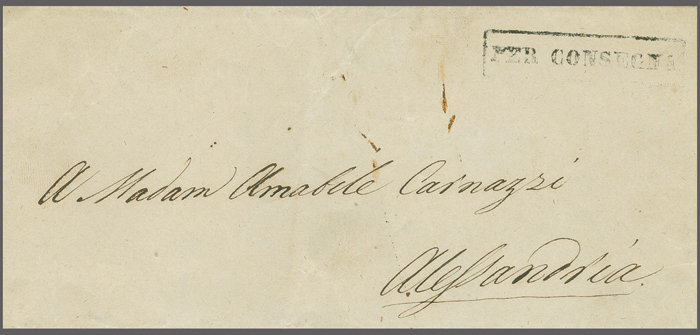 PER CONSEGNA
A Madam Amabile Carnazzi
Alessandria.